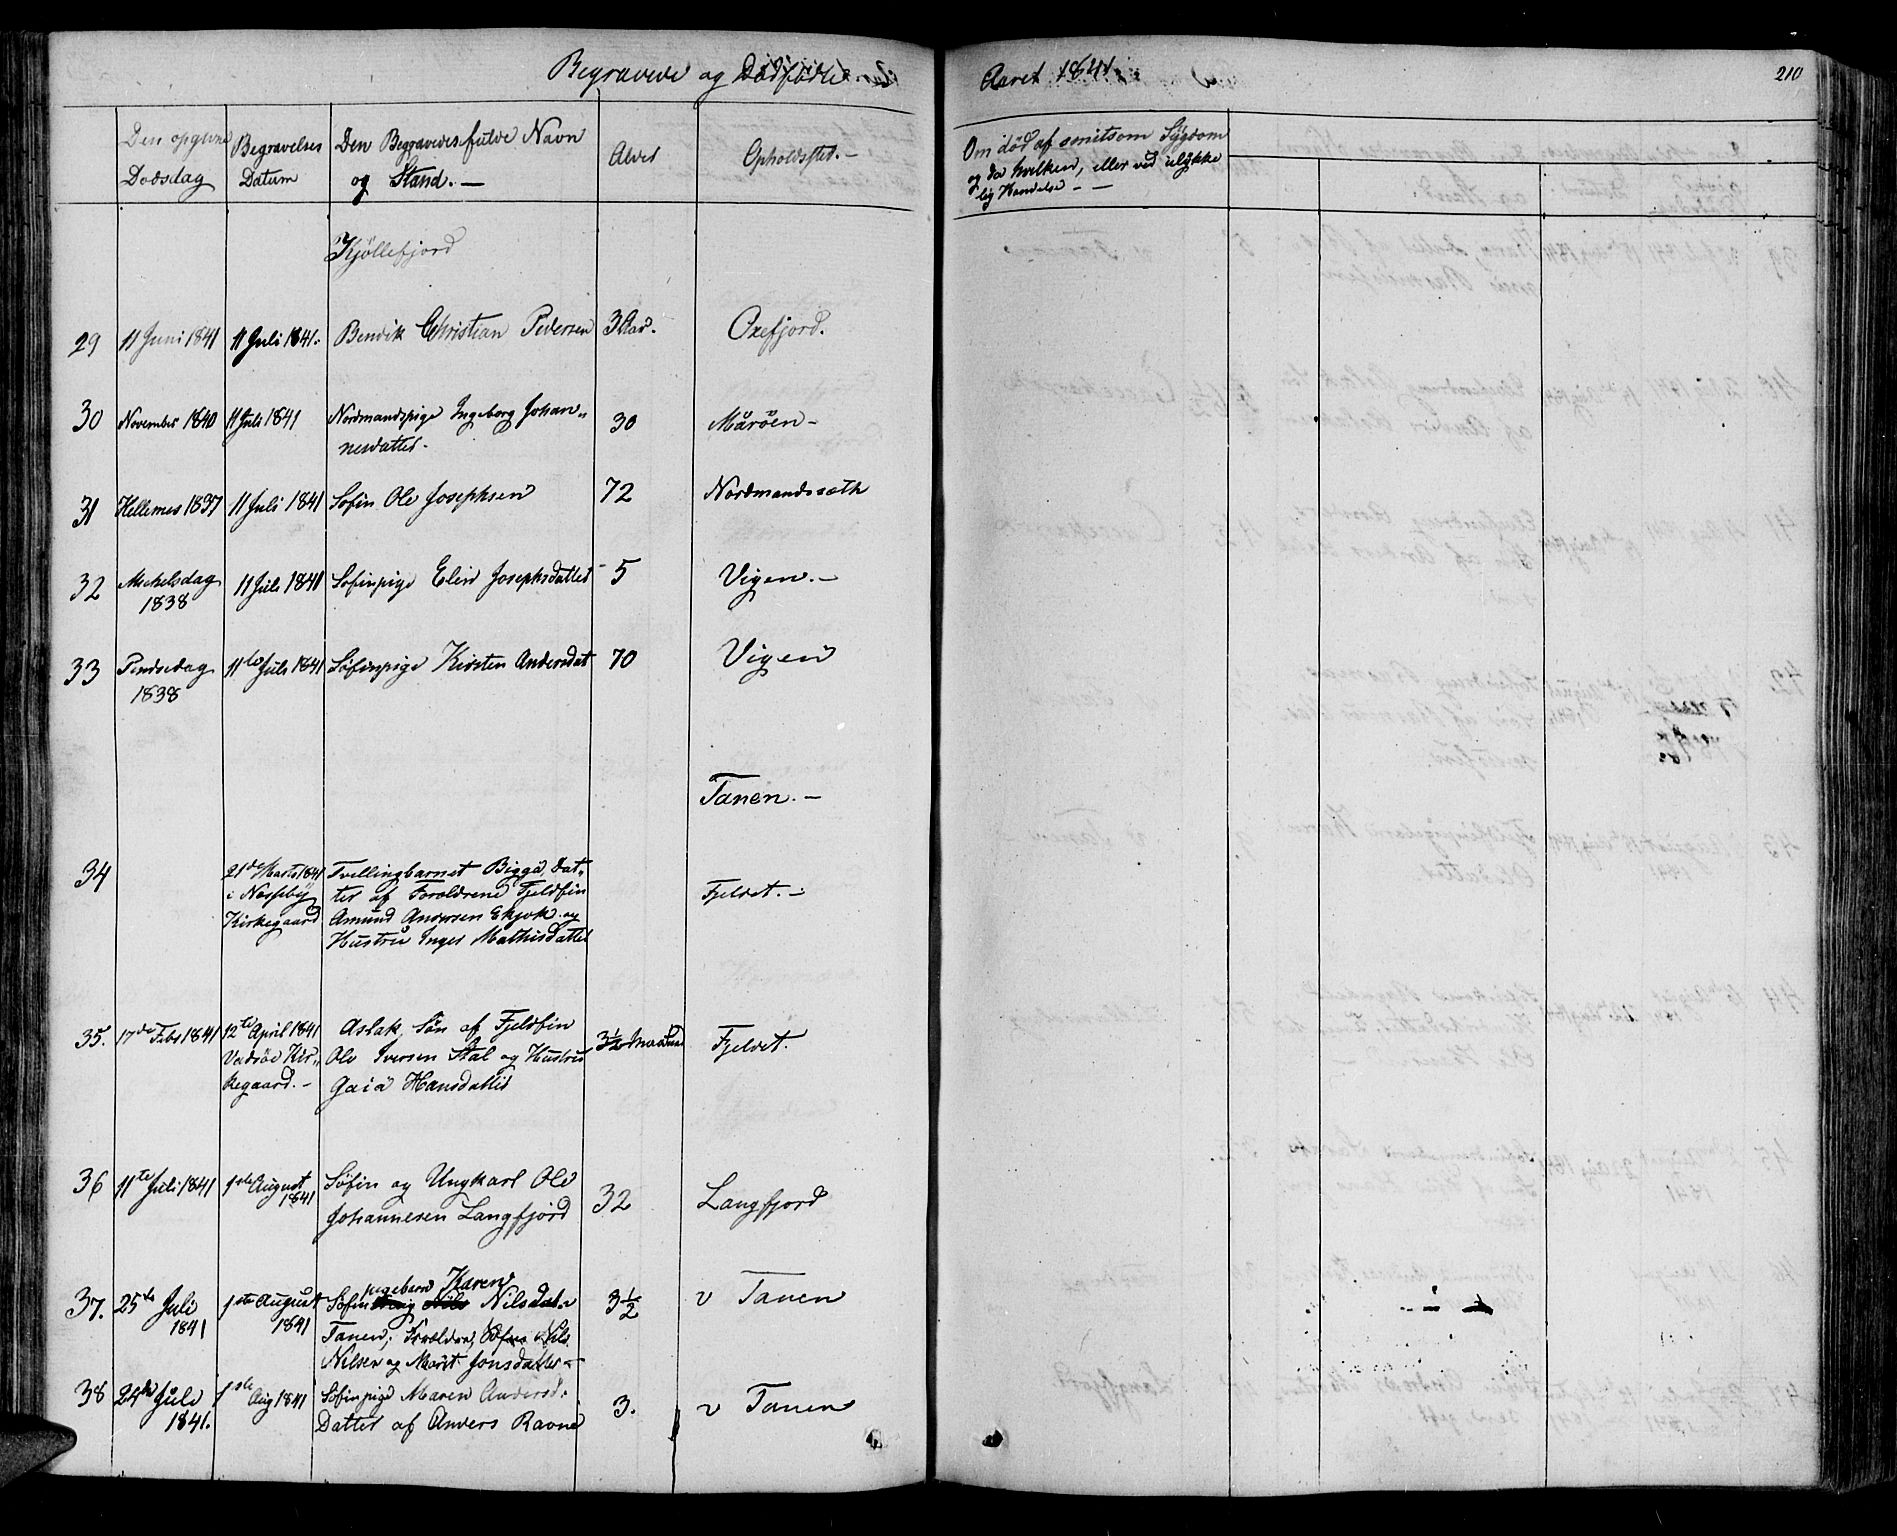 Begravede og Dødfødte
Aaret 1841
210
Den opgivne Dødsdag
Begravelses Datum
Den Begravedes fulde Navn og Stand. —
Alder
Opholdssted. —
Om død af smitsom Sygdom
og da hvilken, eller ved ulykke
lig Hændelse — —
Kjøllefjord
29 11 Juni 1841 11 Juli 1841. Bendik Christian Pedersen 3 Aar. Oxefjord.
30 November 1840 11 Juli 1841 Nordmandspige Ingeborg Johan„ 30 Mårøen —
nesdatter.
31 Hellemes 1837 11 Juli 1841 Søfin Ole Josephsen 72 Nordmandssæth
32 Mickelsdag 11 Juli 1841 Søfinpige Elen Josephsdatter 5 Vigen. —
1838
33 Pindsedag 11te Juli 1841 Søfinpige Kirsten Andersdat 70 Vigen
1838
Tanen. —
34 21de Marts 1841 Tvillingbarnet Bigga, Dat„
i Nesseby ter af Forældrene Fjeldfin Fjeldet. —
Kirkegaard Amund Andersen Ekjok og
Hustru Inger Mathisdatter
35. 17de Febr 1841 12te April 1841 Aslak, Søn af Fjeldfin 3½ Maaned Fjeldet.
Vadsøe Kir„ Ole Iversen Stal og Hustru
kegaard. — Gaia Hansdatter
36 11te Juli 1841 1ste August Søfin og Ungkarl Ole 32 Langfjord
1841 Johannesen Langfjord
pigebarn Karen
37. 25de Juli 1ste August Søfin Nils Nilsdat. 3½ v Tanen
1841 1841 Tanen; Forældre, Nils
Nilsen og Marit Jonsdatter —
38 24de Juli 1ste Aug 1841 Søfinpige Maren Andersd. 3. v Tanen
1841. Datter af Anders Ravna